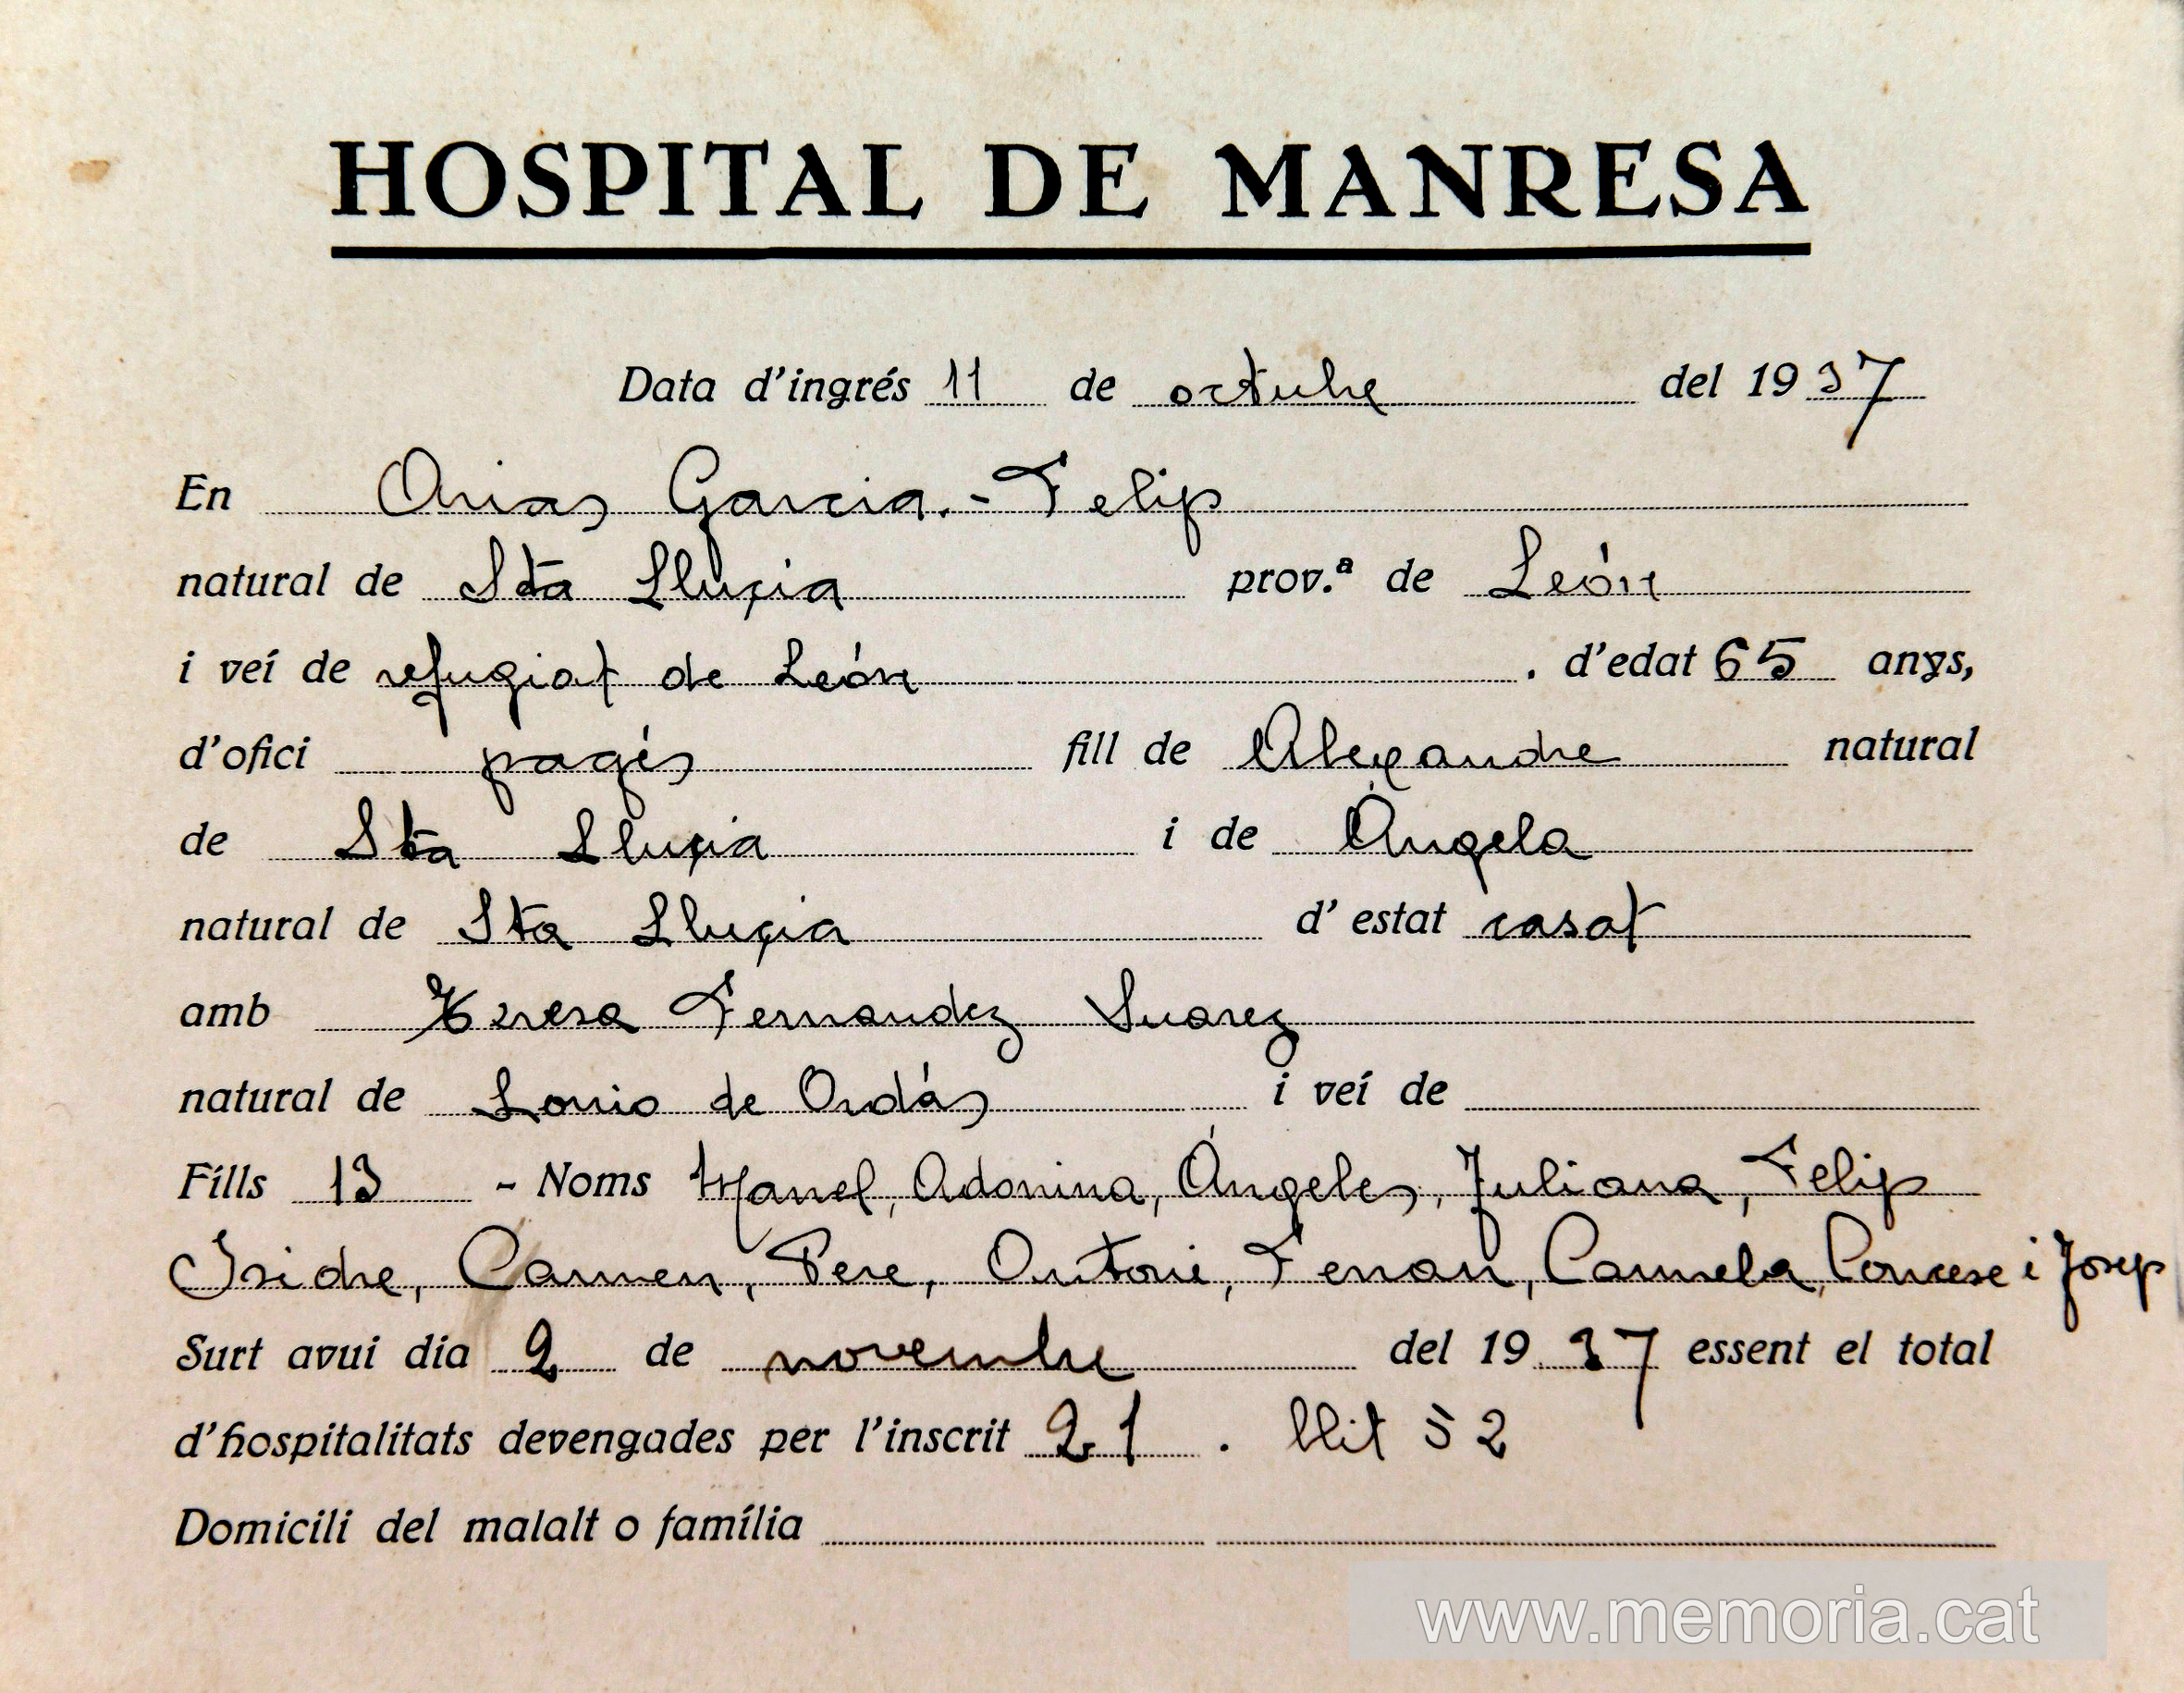 HOSPITAL DE MANRESA
Data d'ingrés 11 de octubre del 1937
En Arias Garcia.- Felip
natural de Sta Lluçia prov.ª de León
i veí de refugiat de León . d'edat 65 anys,
d'ofici pagés fill de Alexandre natural
de Sta Lluçia i de Àngela
natural de Sta Lluçia d'estat casat
amb Teresa Fernandez Suarez
natural de de Ordás i veí de
Fills 13 - Noms Manel, Adonina, Àngeles, Juliana, Felip
Isidre, Carmen, Pere, Antoni, Ferran, Carmela, i Josep
Surt avui dia 2 de novembre del 1937 essent el total
d'hospitalitats devengades per l'inscrit 21 . llit 52
Domicili del malalt o família
www.memoria.cat